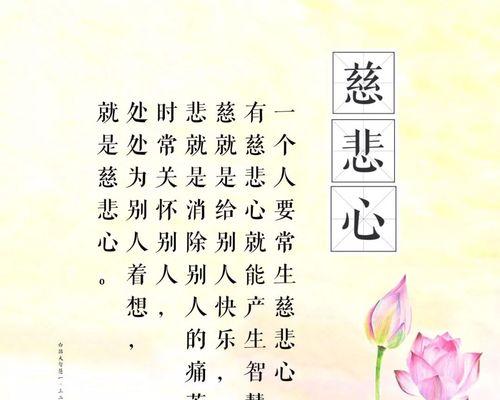 慈悲心
一个人要常生慈悲心
有慈悲心就能产生智慧
慈就是给别人快乐，
悲就是消除别人的痛苦
时常关怀别人，
处处为别人着想，
就是慈悲心。